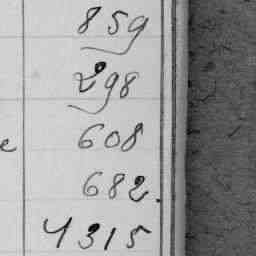 859
298
e 608
682.
4315